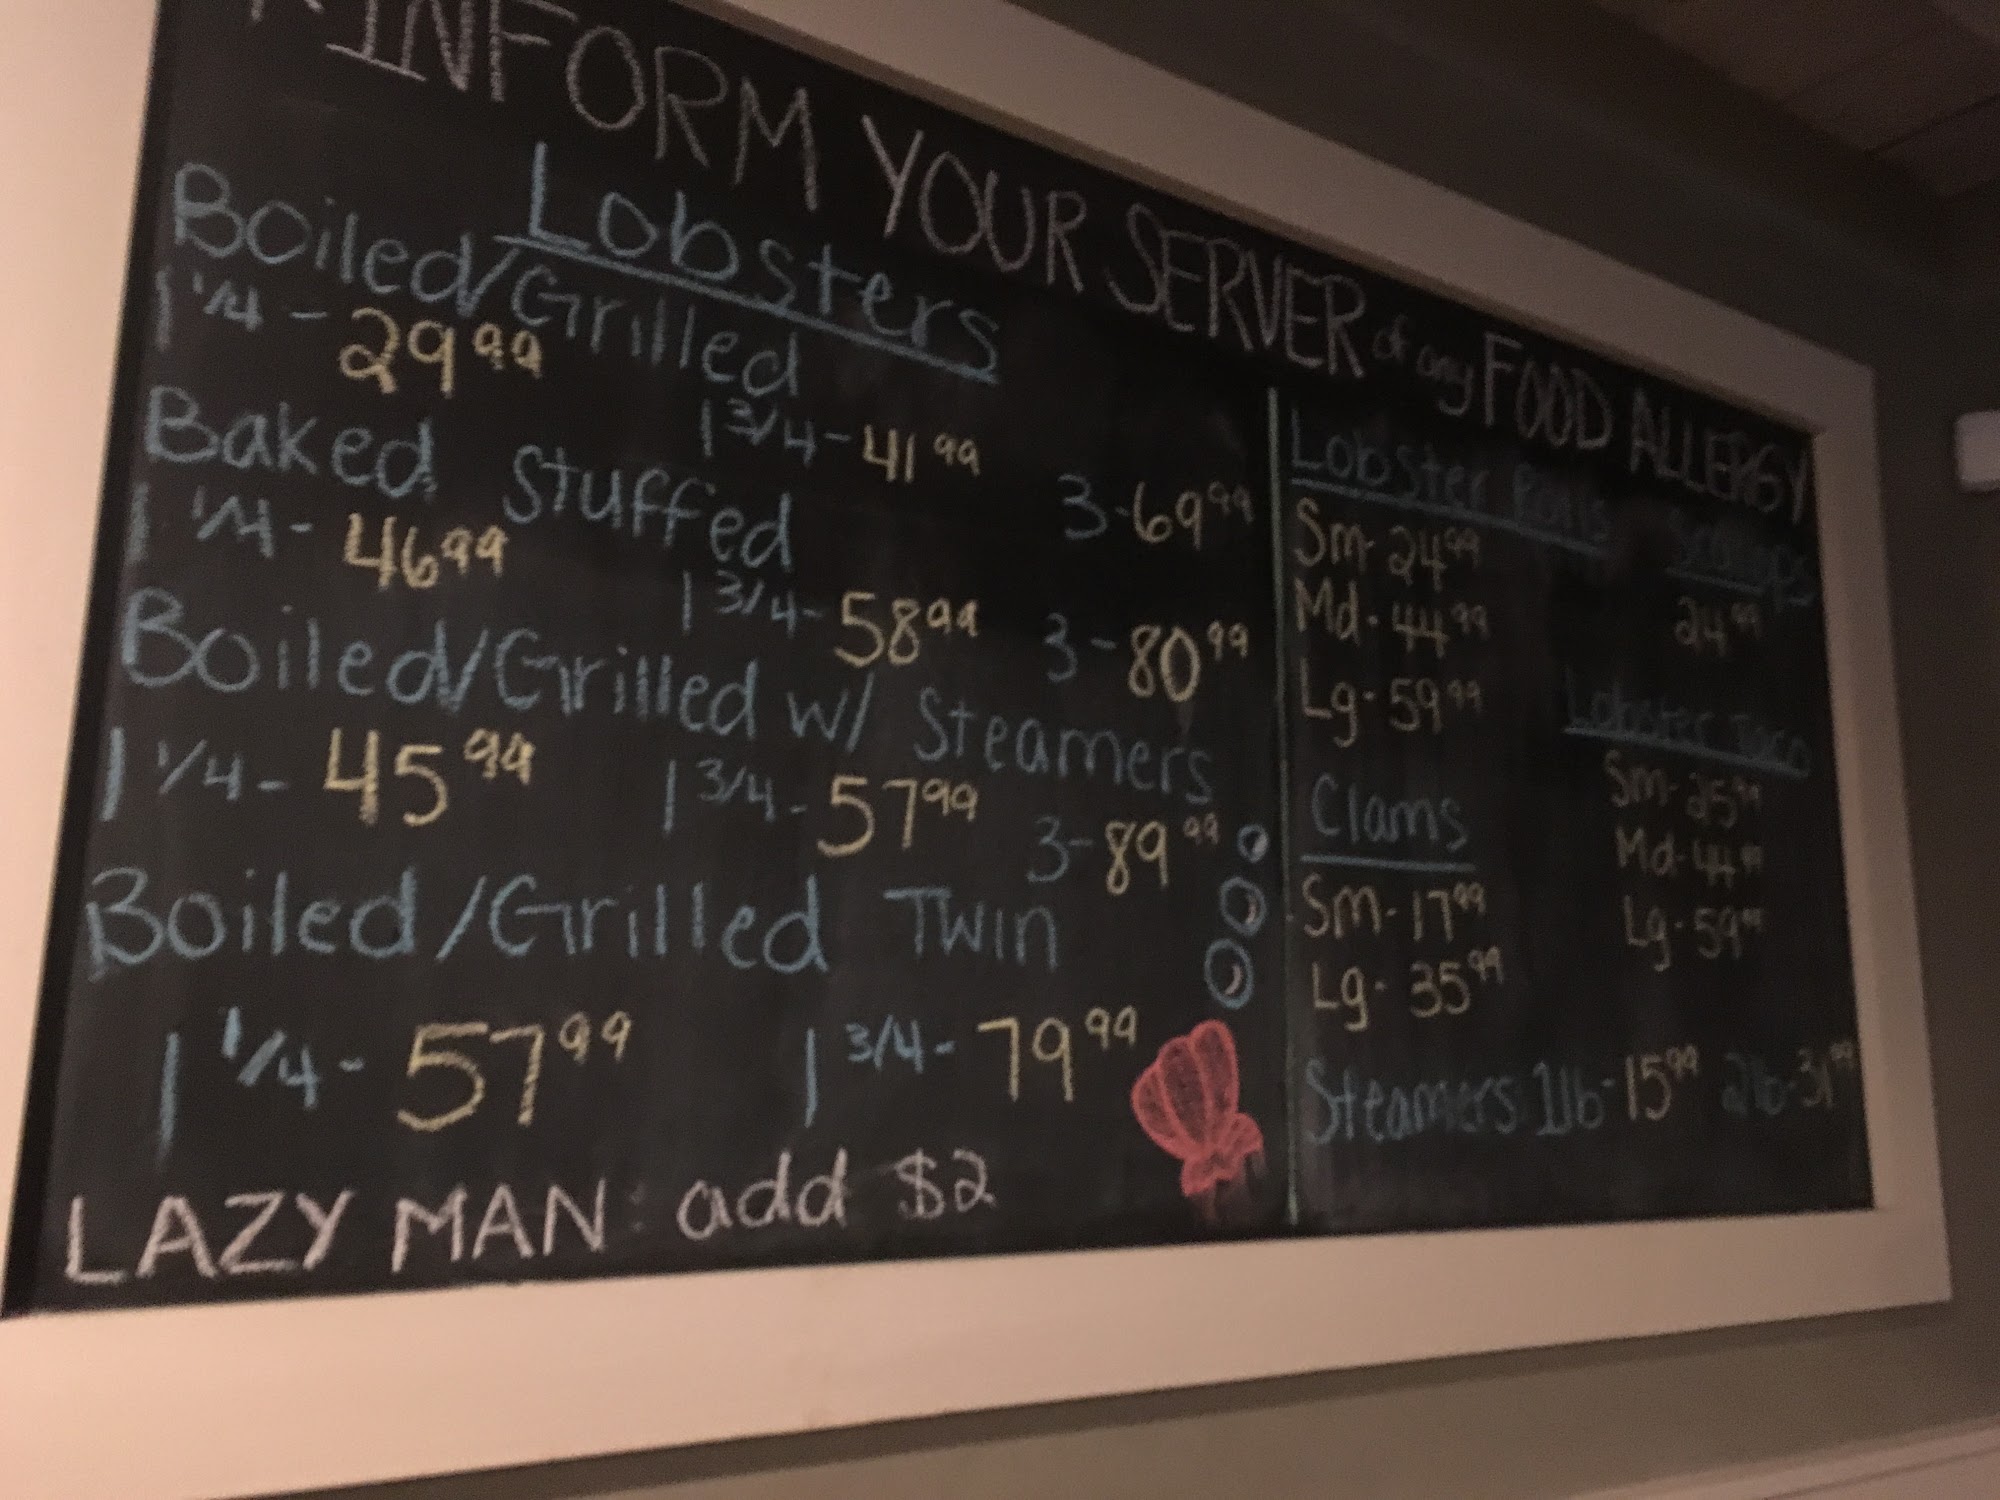 INFORM YOUR SERVER of any FOOD ALLERGY
Lobsters
Boiled/Grilled
1 1/4 - 29 99
1 3/4 - 41 99
3 - 69 99
Baked Stuffed
1 1/4 - 46 99
1 3/4 - 58 99
3 - 80 99
Boiled/Grilled w/ Steamers
1 1/4 - 45 99
1 3/4 - 57 99
3 - 89 99
Boiled/Grilled Twin
1 1/4 - 57 99
1 3/4 - 79 99
LAZY MAN: add $2
Lobster Rolls
Sm - 24 99
Md - 44 99
Lg - 59 99
Clams
Sm - 17 99
Lg - 35 99
Scallops
24 99
Lobster Taco
Sm - 25 99
Md - 44 99
Lg - 59 99
Steamers 1lb - 15 99 2lb - 31 99